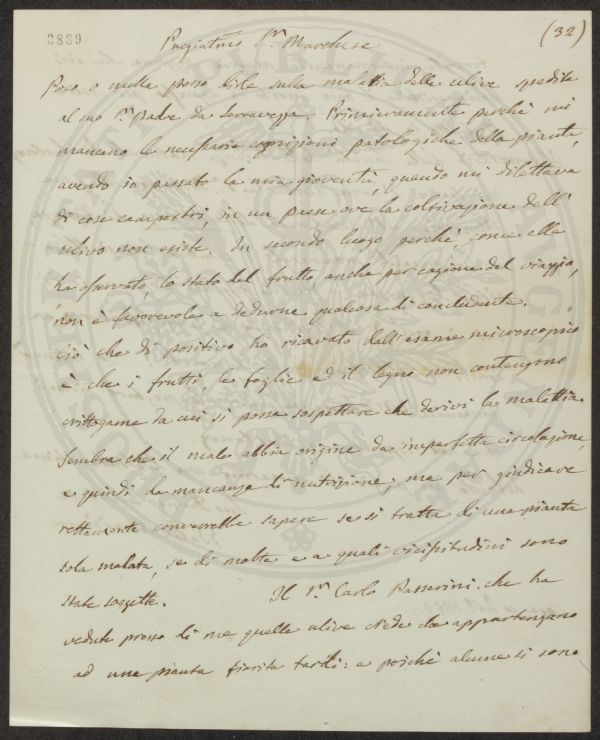 (32)
3889
Pregiatmo Sr. Marchese
Poco o nulla posso dirle sulla malattia delle ulive spedite
al suo Sr. Padre da Seravezza. Primieramente perchè mi
mancano le necessarie cognizioni patologiche della pianta,
avendo io passato la mia gioventù, quando mi dilettava
di cose campestri, in un paese ove la coltivazione dell'
ulivo non esiste. In secondo luogo, perchè, come ella
ha osservato, lo stato del frutto, anche per cagione del viaggio,
non è favorevole a dedurne qualcosa di concludente.
Ciò che di positivo ho ricavato dall'esame microscopico
è che i frutti, le foglie ed il legno non contengono
crittogame da cui si possa sospettare che derivi la malattia.
Sembra che il male abbia origine da imperfetta circolazione,
e quindi da mancanza di nutrizione; ma per giudicare
rettamente converrebbe sapere se si tratta di una pianta
sola malata, se di molte e a quali vicissitudini sono
state soggette. Il Sr. Carlo Passerini, che ha
vedute presso di me quelle ulive crede che appartengano
ad una pianta fiorita tardi: e poichè alcune si sono